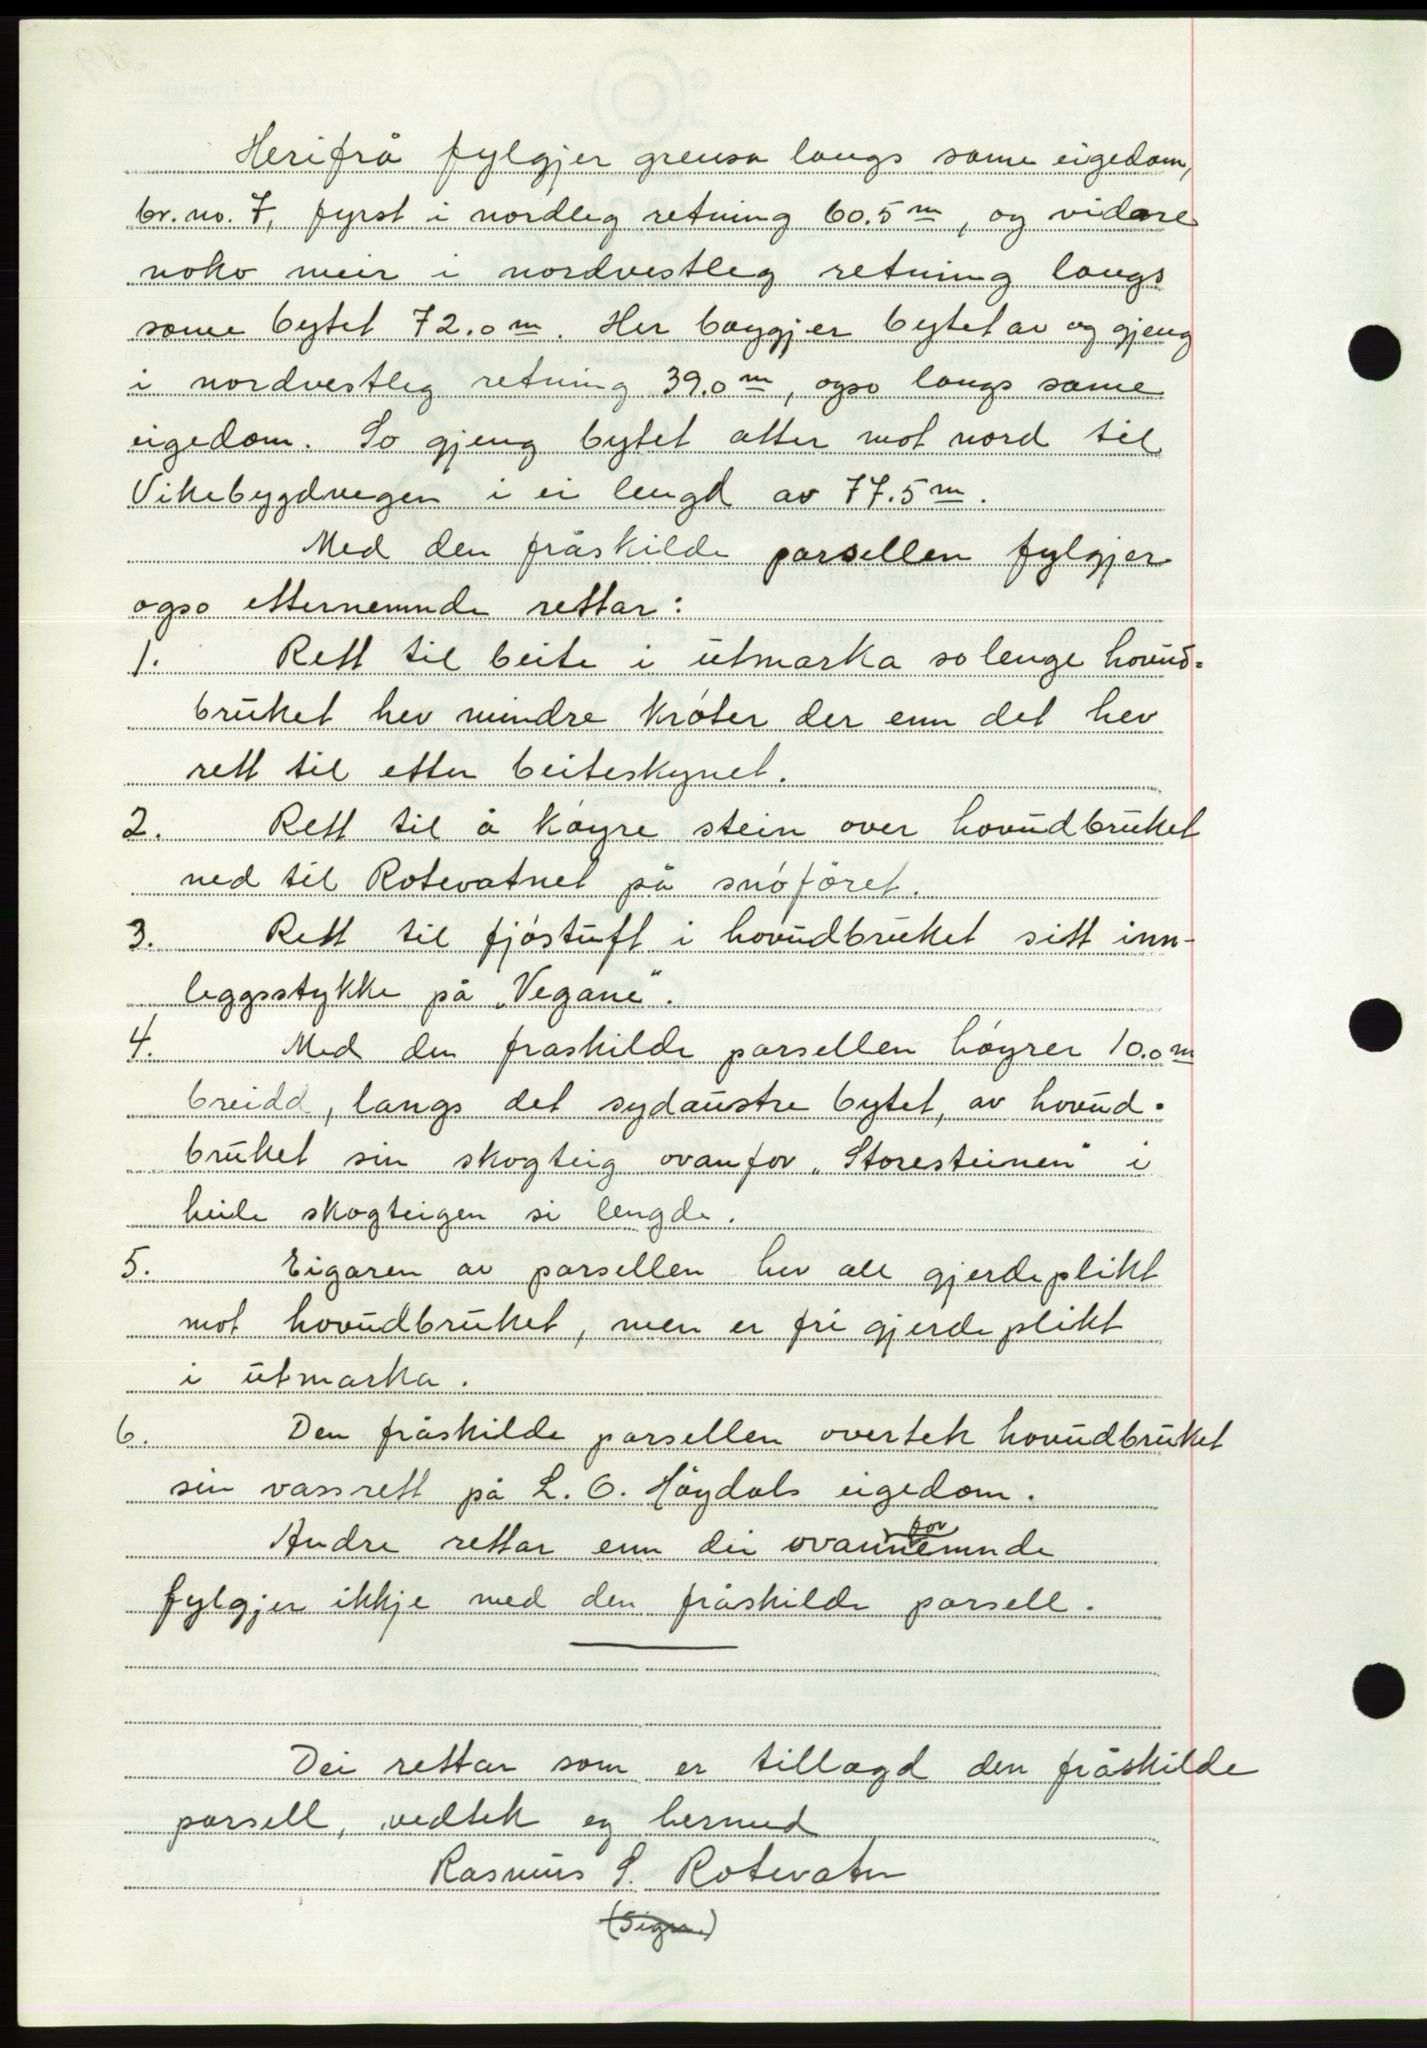 Herifrå fylgjer grensa langs same eigedom,
br. no. 7, fyrst i nordleg retning 60.5 m, og vidare
noko meir i nordvestleg retning langs
same bytet 72.0 m. Her bøygjer bytet av og gjeng
i nordvestleg retning 39.0 m, ogso langs same
eigedom. So gjeng bytet atter mot nord til
Vikebygdvegen i ei lengd av 77.5 m.
Med den fråskilde parsellen fylgjer
ogso etternemnde rettar:
1. Rett til beite i utmarka so lenge hovud-
bruket hev mindre krøter der enn det hev
rett til etter beiteskynet.
2. Rett til å køyre stein over hovudbruket
ned til Rotevatnet på snøføret.
3. Rett til fjøstuft i hovudbruket sitt inn-
leggsstykke på „Vegane".
4. Med den fraskilde parsellen høyrer 10.0 m
breidd, langs det sydaustre bytet, av hovud-
bruket sin skogteig ovanfor „Storesteinen" i
heile skogteigen si lengde.
5. Eigaren av parsellen hev all gjerdeplikt
mot hovudbruket, men er fri gjerdeplikt
i utmarka.
6. Den fråskilde parsellen overtek hovudbruket
sin vassrett på L. O. Høydals eigedom.
for
Andre rettar enn dei ovannemnde
fylgjer ikkje med den fråskilde parsell.
Dei rettar som er tillagd den fråskilde
parsell, vedtek eg hermed
Rasmus S. Rotevatn
(Sign.)